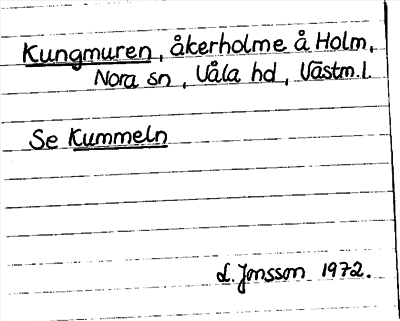 Kungmuren, åkerholme å Holm,
Nora sn, Våla hd, Västm.l.
Se Kummeln
L. Jonsson 1972.